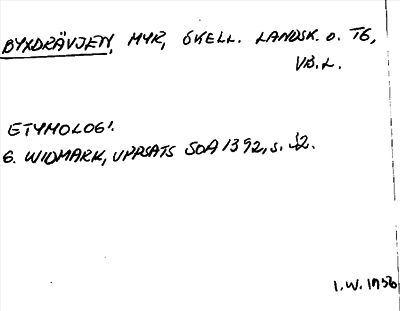 BYXDRÄVJEN, MYR, SKELL. LANDSK. O. TG,
VB.L.
ETYMOLOGI.
G. WIDMARK, UPPSATS SOA 1392, s. 52.
I.W. 1956